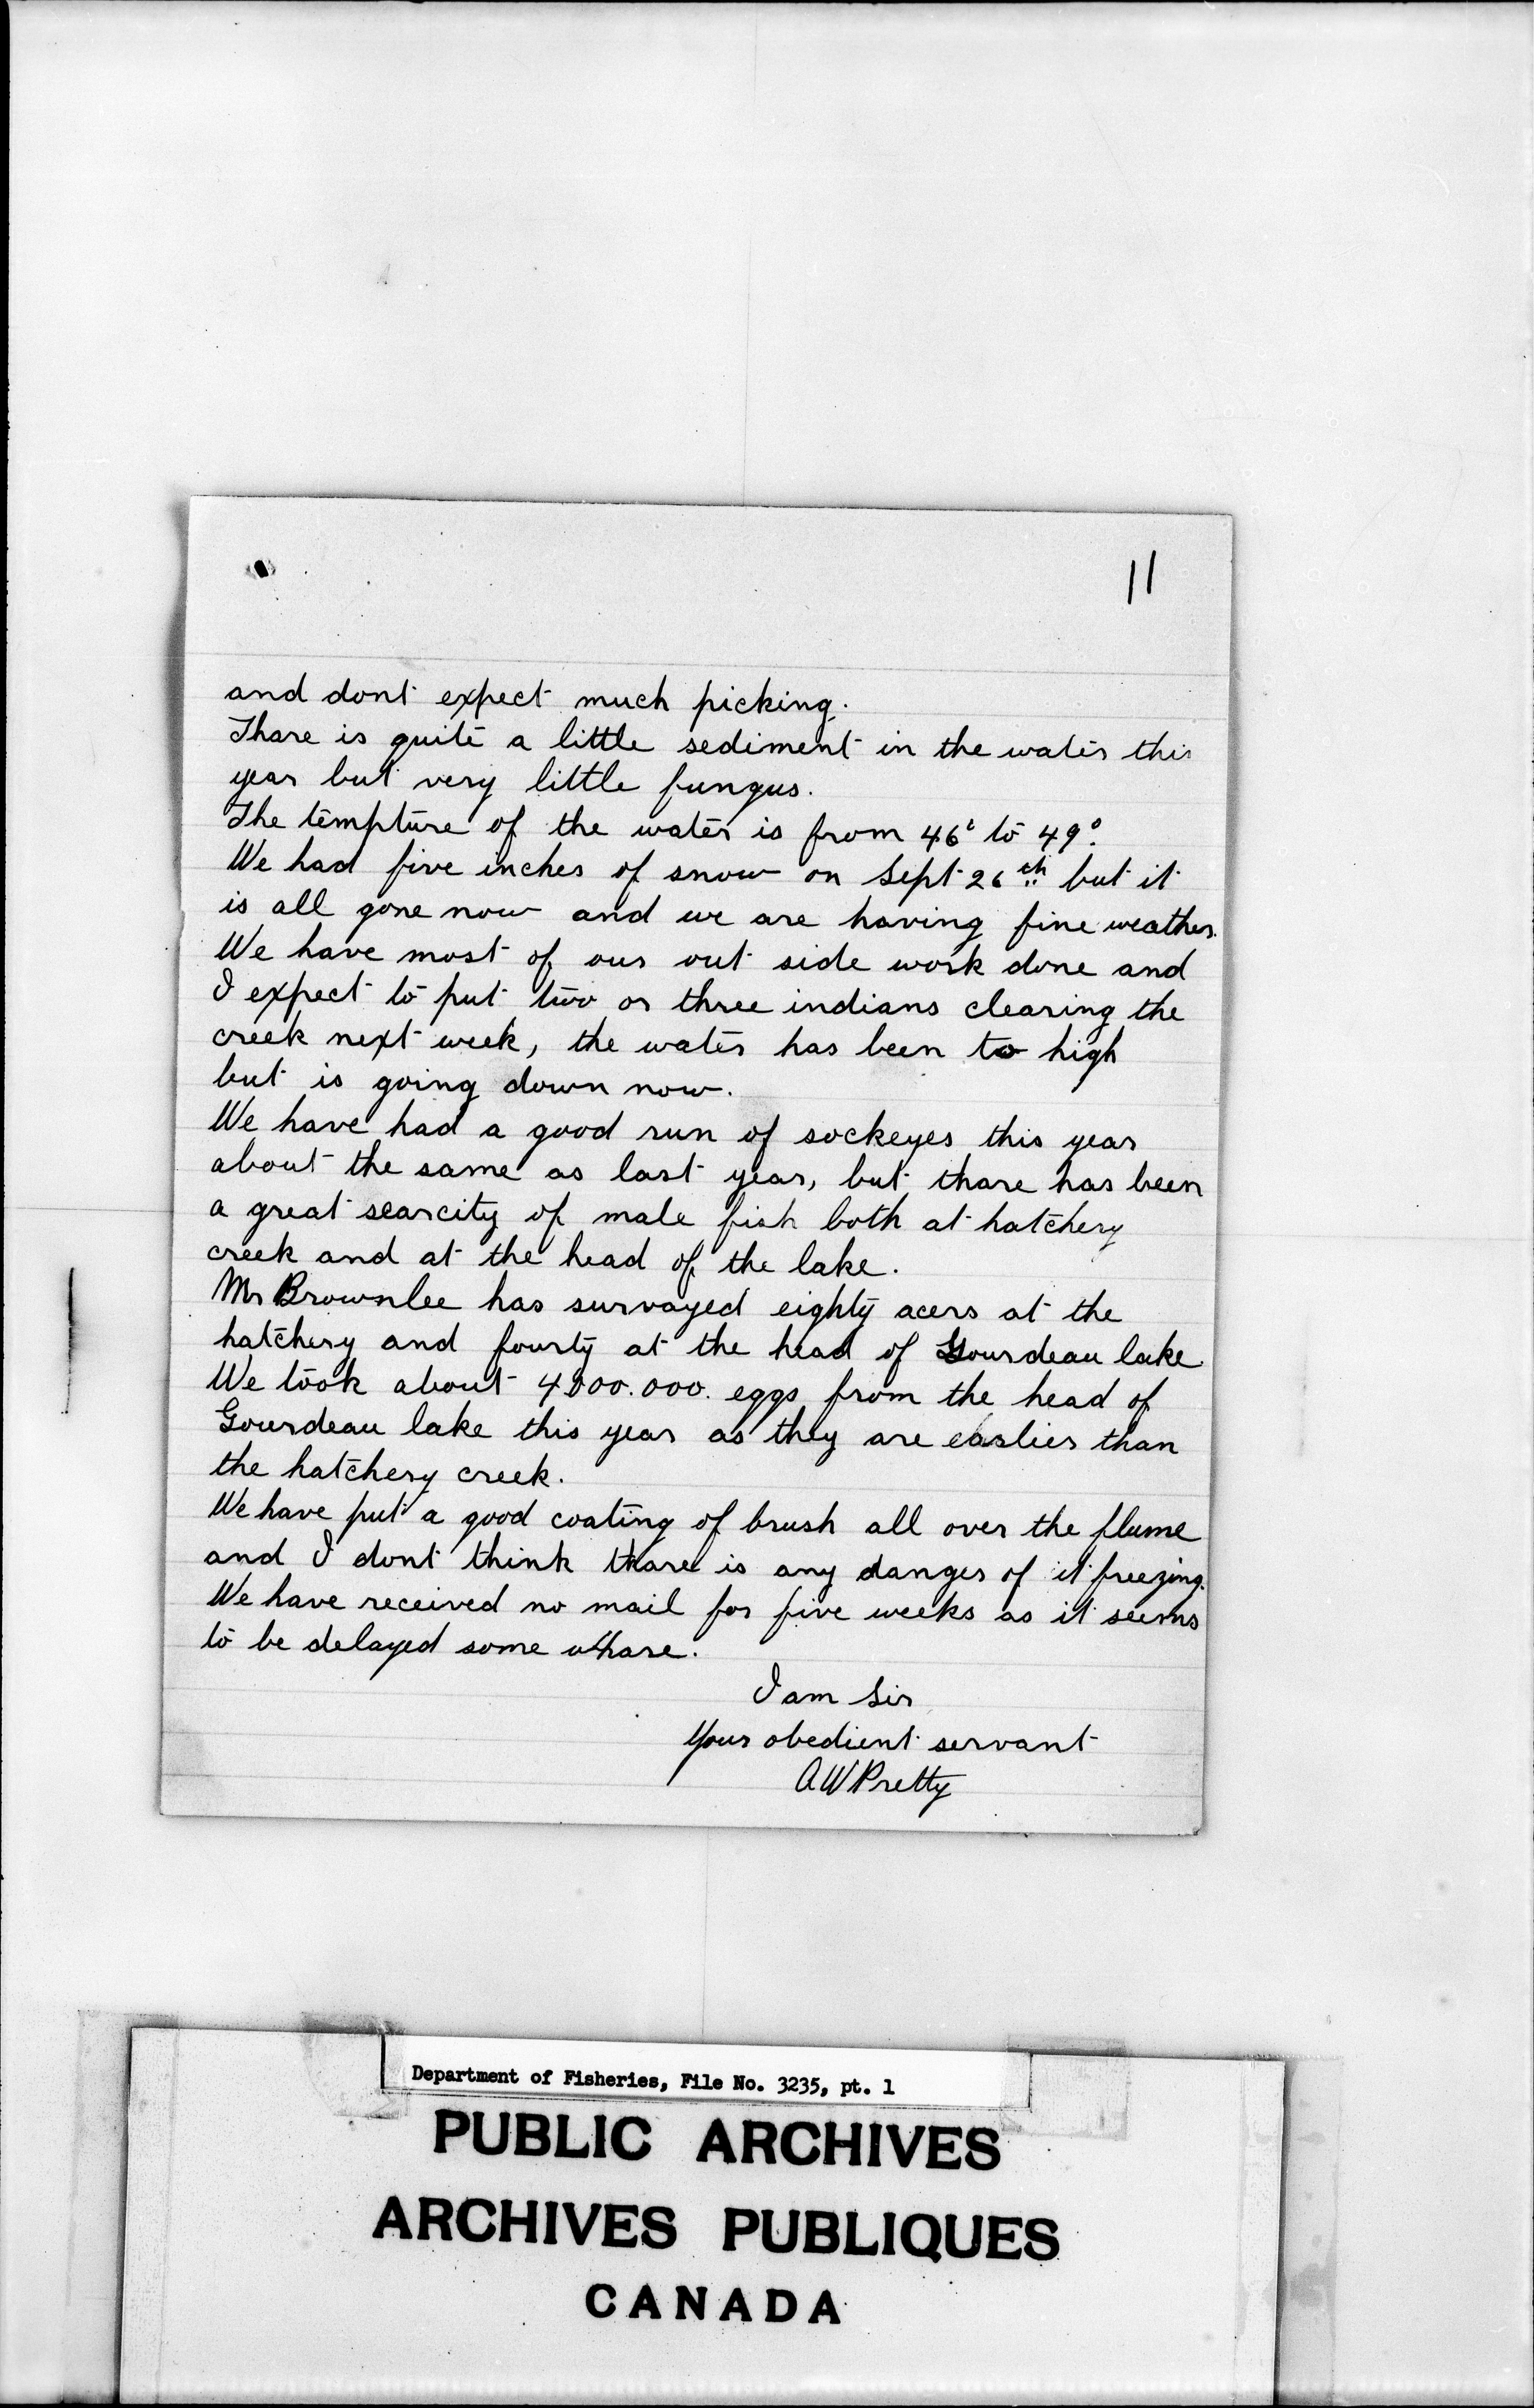 11
and dont expect much picking.
Thare is quite a little sediment in the water this
year but very little fungus.
The tempture of the water is from 46° to 49°.
We had five inches of snow on Sept 26th but it
is all gone now and we are having fine weather.
We have most of our out side work done and
I expect to put two or three indians clearing the
creek next week, the water has been to high
but is going down now.
We have had a good run of sockeyes this year
about the same as last year, but thare has been
a great scarcity of male fish both at hatchery
creek and at the head of the lake.
Mr Brownlee has survayed eighty acers at the
hatchery and fourty at the head of Gourdeau lake.
We took about 4000.000. eggs from the head of
Gourdeau lake this year as they are earlier than
the hatchery creek.
We have put a good coating of brush all over the flume
and I dont think thare is any danger of it freezing.
We have received no mail for five weeks as it seems
to be delayed some whare.
I am Sir
Your obedient servant
AW Pretty
Department of Fisheries, File No. 3235, pt. 1
PUBLIC ARCHIVES
ARCHIVES PUBLIQUES
CANADA